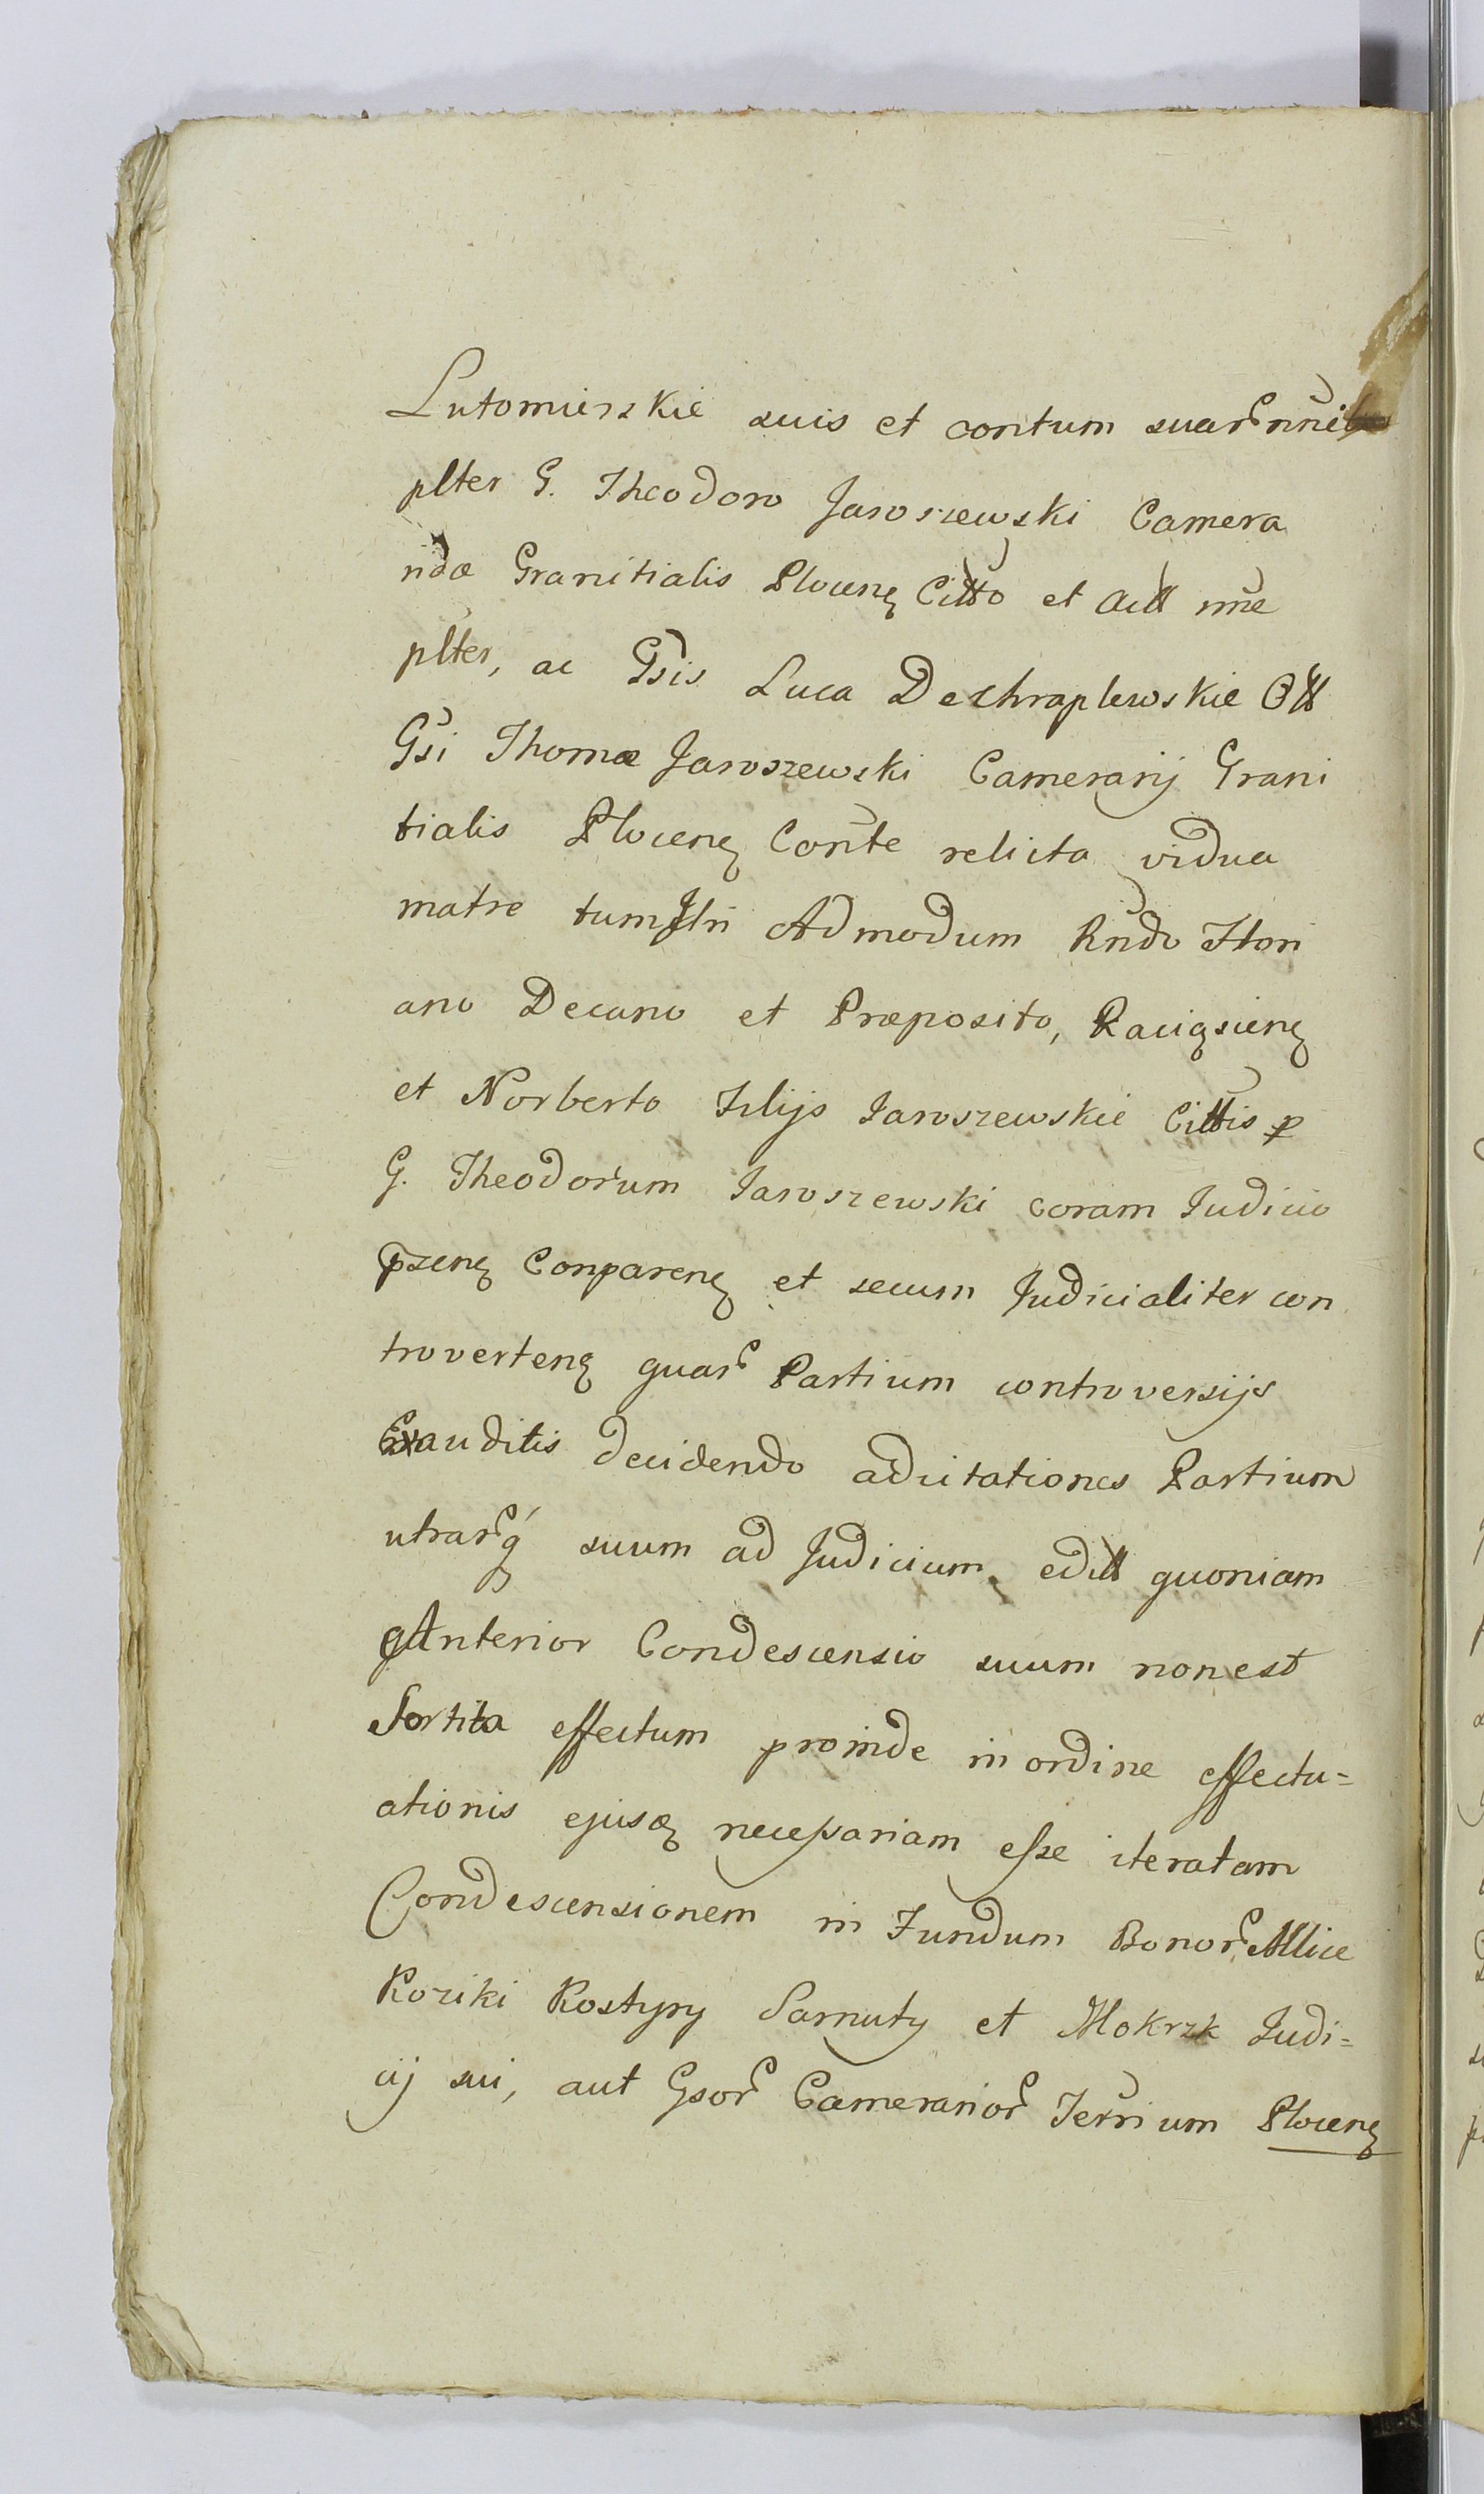 Lutomierskie suis et contum suarũ nñibus
plter G. Theodoro Jaroszewski Camera
ridæ Granitialis Plocenꝫ Citto et Actt nñe
plter, ac Gsis Luca Dechraplewskie Ott
Gsi Thomæ Jaroszewski Camerarij Grani
tialis Plocenꝫ Conte relicta vidua
matre tum Jltri Admodum Rñdo Flori
ano Decano et Præposito, Raciąsienꝫ
et Norberto Filijs Jaroszewskie Cittis p
G. Theodorum Jaroszewski coram Judicio
pñsenꝫ Conparenꝫ et secum Judicialiter con
trovertenꝫ quarũ Partium controversijs
Exauditis decidendo adcitationes Partium
utrarũqꝫ suum ad Judicium edictt quoniam
Anterior Condescensio suum non est
Sortita effectum proinde in ordine effectu=
ationis ejusdꝫ necessariam esse iteratam
Condescensionem in Fundum Bonorũ Mlice
Koziki Kostyry Sarnuty et Mokrzk Judi=
cij sui, aut Gsorũ Camerariorũ Terrium Plocenꝫ